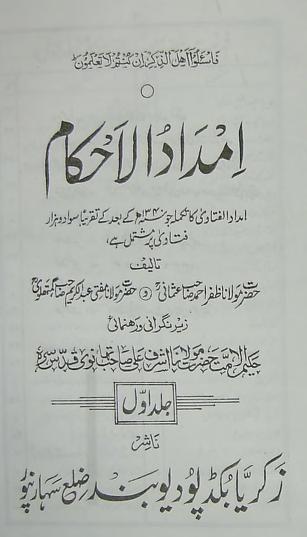 فَاسْئَلُوْٓا اَهْلَ الذِّكْرِ اِنْ كُنْتُمْ لَا تَعْلَمُوْنَ
امداد الاحکام
امداد الفتاویٰ کا تکملہ جو ۱۳۴۰ھ کے بعد کے تقریباً سوا دو ہزار
فتاویٰ پر مشتمل ہے،
تالیف
حضرت مولانا ظفر احمد صاحب عثمانیؒ (و) حضرت مولانا مفتی عبدالکریم صاحب گمتھلویؒ
زیر نگرانی و رہنمائی
حکیم الامت حضرت مولانا اشرف علی صاحب تھانوی قدس سرہٗ
جلد اوّل
ناشر
زکریا بکڈپو دیوبند ضلع سہارنپور